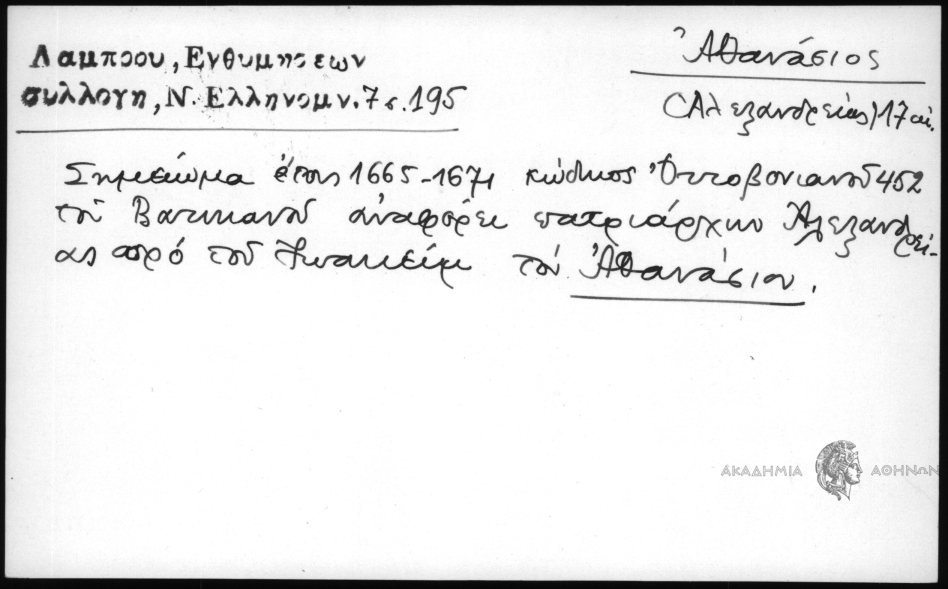 Λαμπρου, Ενθυμησεων
συλλογη, Ν. Ελληνομν. 7 σ. 195
Ἀθανάσιος
(Ἀλεξανδρείας) 17 αἰ.
Σημείωμα ἔτους 1665-1671 κώδικος Ὀττοβονιανοῦ 452
τοῦ Βατικανοῦ ἀναφέρει πατριάρχην Ἀλεξανδρεί-
ας πρό τοῦ Ἰωακείμ τόν Ἀθανάσιον.
ΑΚΑΔΗΜΙΑ ΑΘΗΝΩΝ